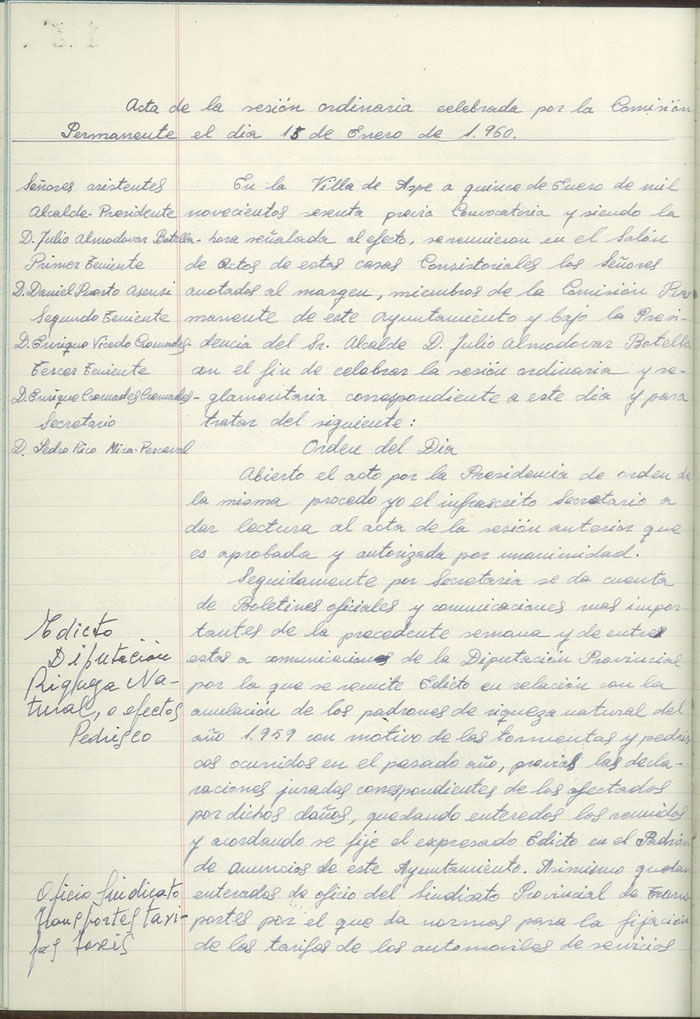 Acta de la sesión ordinaria celebrada por la Comisión
Permanente el dia 15 de Enero de 1.960.
Señores asistentes
Alcalde-Presidente
D. Julio Almodovar Botella
Primer Teniente
D. Daniel Puerto Asensi
Segundo Teniente
D. Enrique Vicedo Cremades
Tercer Teniente
D. Enrique Cremades Cremades
Secretario
D. Pedro Rico Mira-Perceval
En la Villa de Aspe a quince de Enero de mil
novecientos sesenta previa Convocatoria y siendo la
hora señalada al efecto, se reunieron en el Salón
de Actos de estas casas Consistoriales los Señores
anotados al margen, miembros de la Comisión Per
manente de este Ayuntamiento y bajo la Presi-
dencia del Sr. Alcalde D. Julio Almodovar Botella
con el fin de celebrar la sesión ordinaria y re-
glamentaria correspondiente a este dia y para
tratar del siguiente:
Orden del Dia
Abierto el acto por la Presidencia de orden de
la misma procedo yo el infrascrito Secretario a
dar lectura al acta de la sesión anterior que
es aprobada y autorizada por unanimidad.
Seguidamente por Secretaria se da cuenta
de Boletines oficiales y comunicaciones mas impor-
tantes de la precedente semana y de entre
estas a comunicaciones de la Diputación Provincial
por la que se remite Edicto en relación con la
anulación de los padrones de riqueza natural del
año 1.959 con motivo de las tormentas y pedris
cos ocurridos en el pasado año, previas las decla-
raciones juradas correspondientes de los afectados
por dichos daños, quedando enterados los reunidos
y acordando se fije el expresado Edicto en el Padrón
de Anuncios de este Ayuntamiento. Asimismo quedan
enterados de oficio del Sindicato Provincial de Trans
portes por el que da normas para la fijación
de las tarifas de los automoviles de servicios
Edicto
Diputación
Riqueza Na-
tural, o efectos
Pedrisco
Oficio Sindicato
Transportes tari-
fas taxis